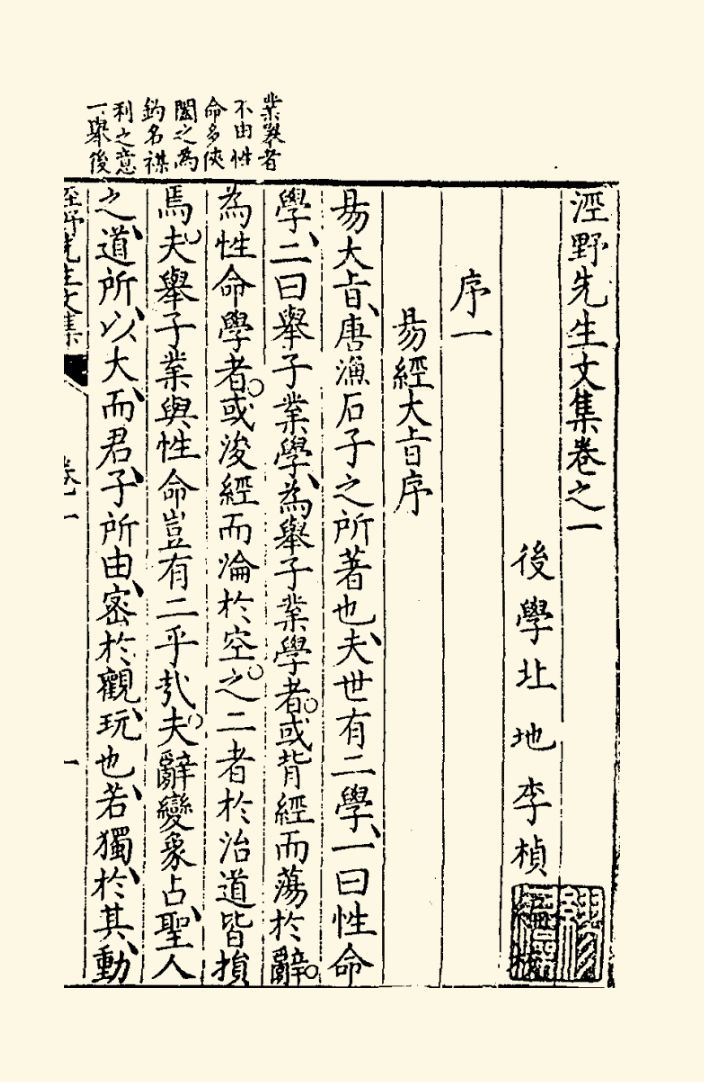 業舉者
不由性
命多俠
之為
釣名禖
利之意
一舉後
涇野先生文集卷之一
後學北地李楨
序一
易經大旨序
易大旨唐漁石子之所著也夫世有二學一曰性命
學二曰舉子業學為舉子業學者或背經而蕩於辭
為性命學者或浚經而淪於空之二者於治道皆損
焉夫舉子業與性命豈有二乎㢤夫辭變象占聖人
之道所以大而君子所由密於觀玩也若獨於其動
涇野先生文集
一